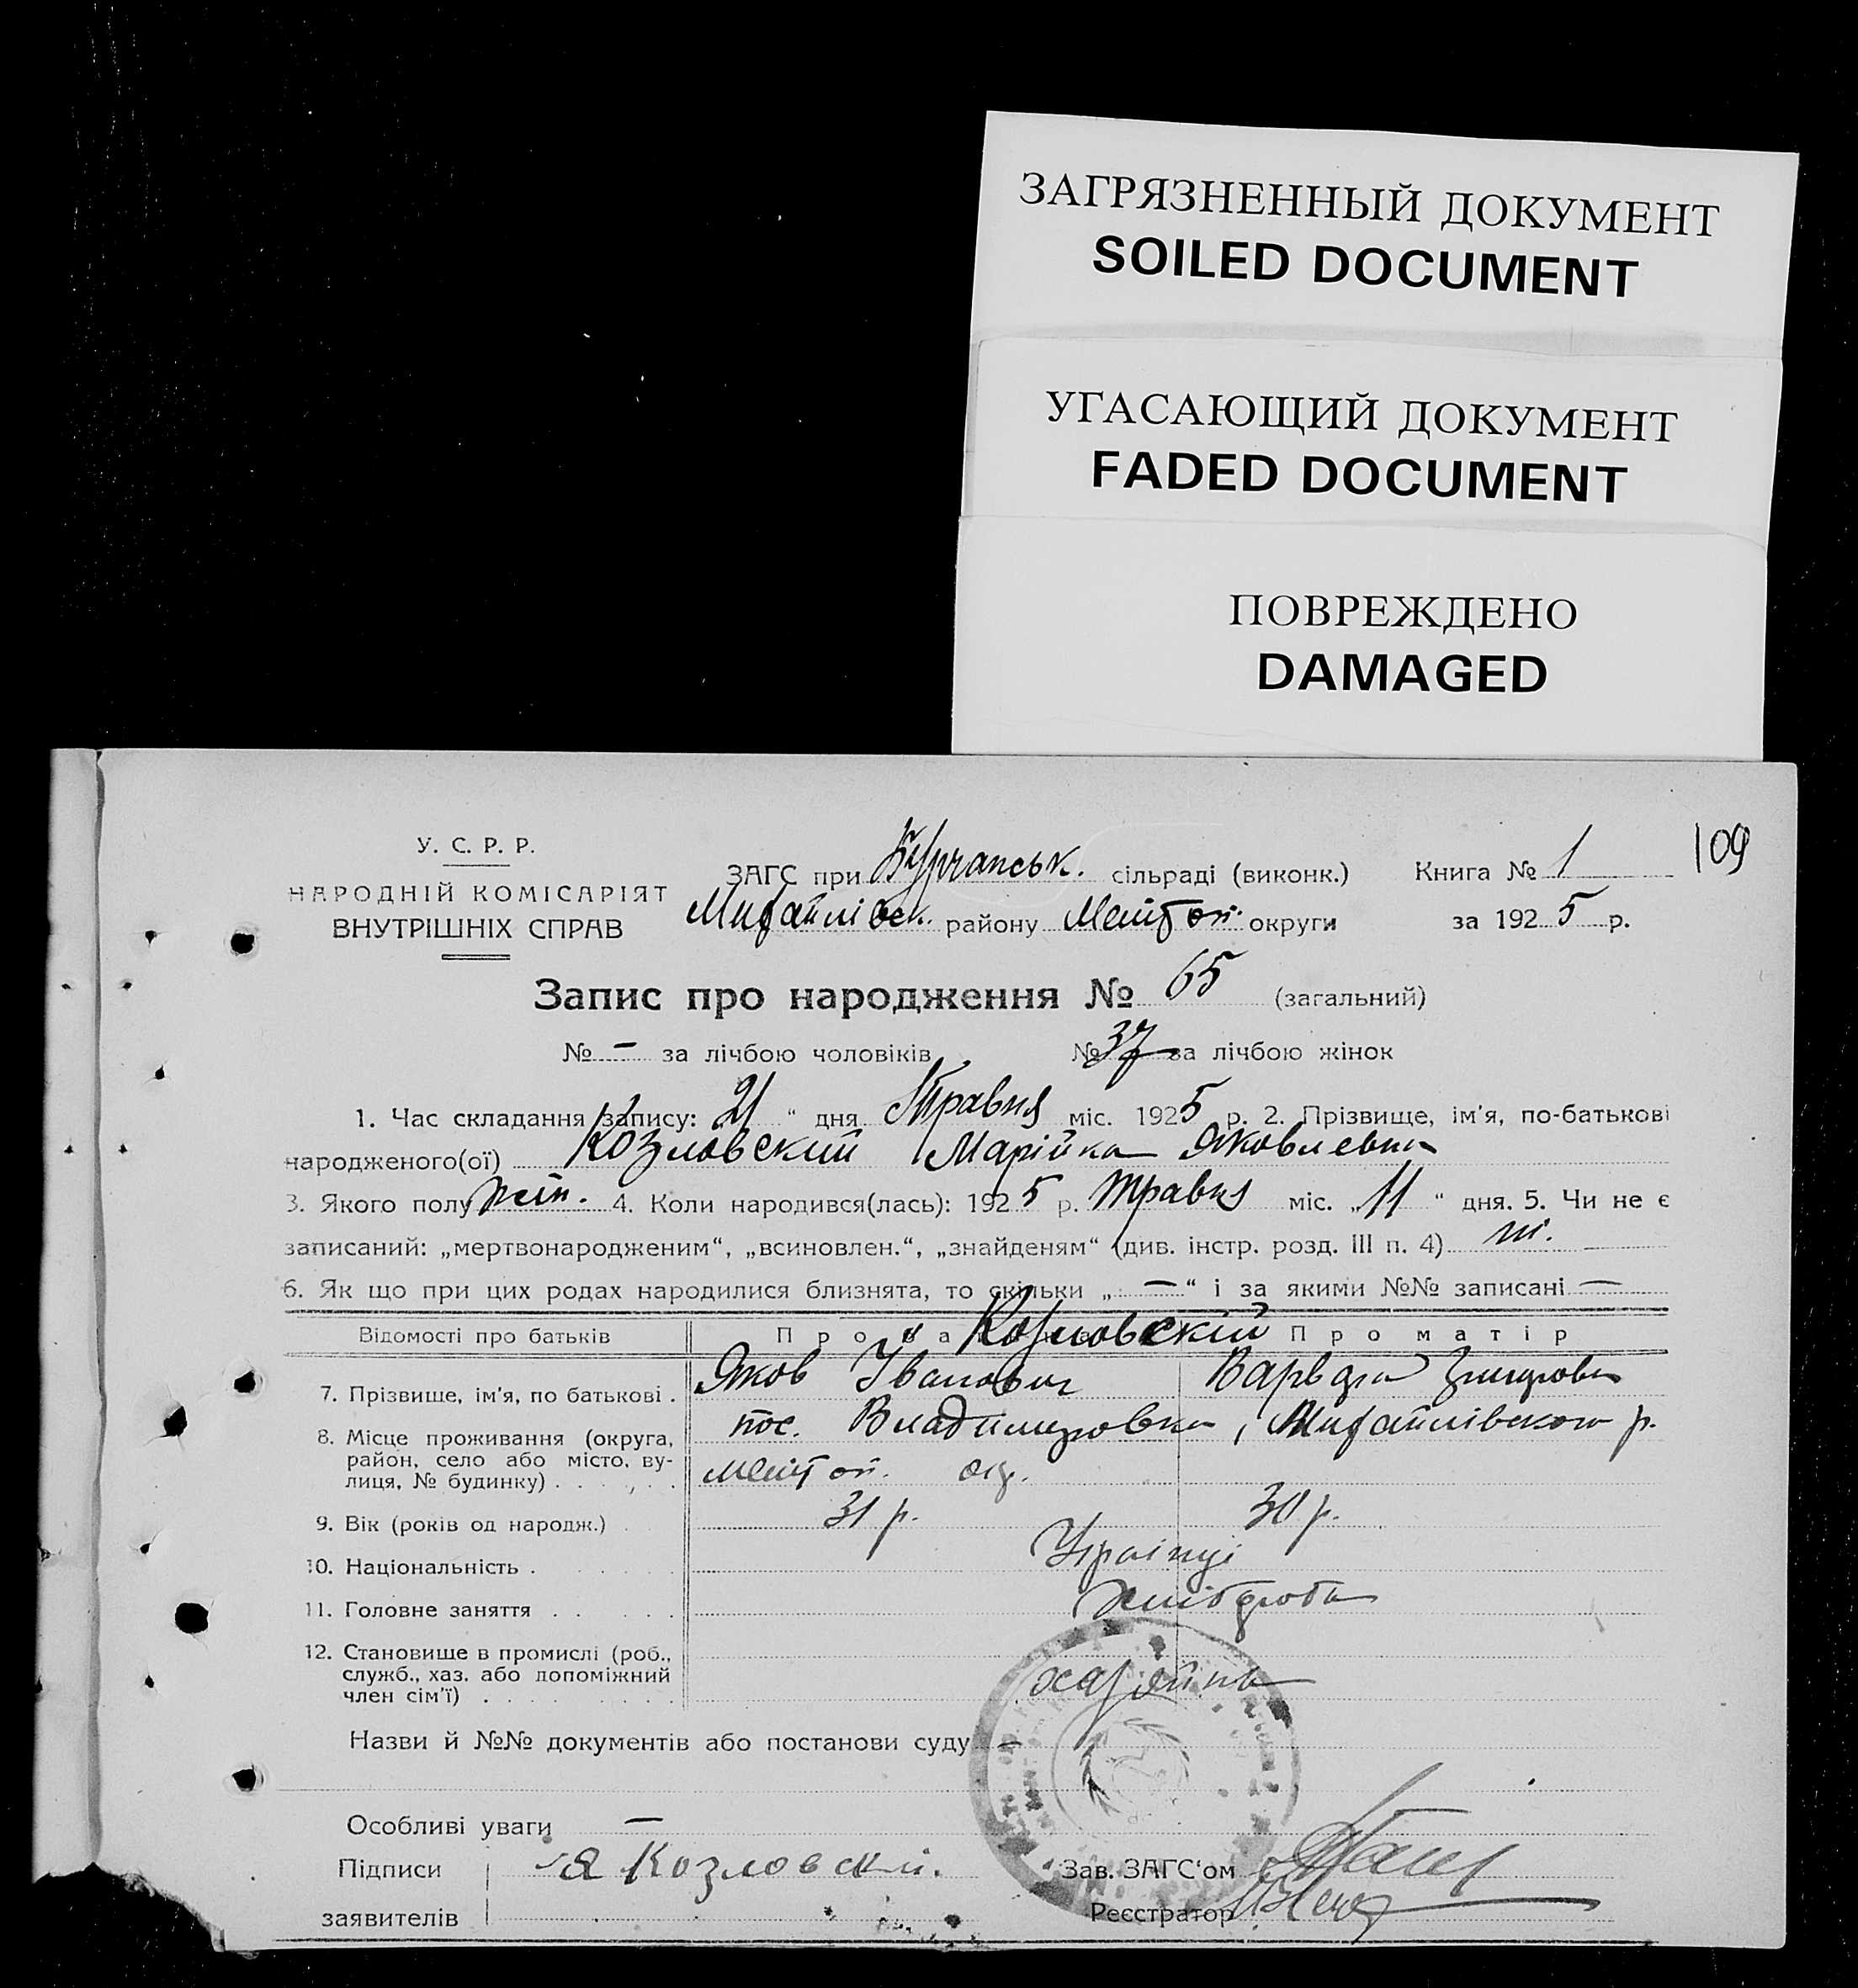 ЗАГРЯЗНЕННЫЙ ДОКУМЕНТ
SOILED DOCUMENT
УГАСАЮЩИЙ ДОКУМЕНТ
FADED DOCUMENT
ПОВРЕЖДЕНО
DAMAGED
109
У. С. Р. Р.
НАРОДНІЙ КОМІСАРІЯТ
ВНУТРІШНІХ СПРАВ
ЗАГС при Бурчанськ. сільраді (виконк.) Книга № 1
Михайлівск. району Меліт оп. округи за 1925 р.
Запис про народження № 65 (загальний)
№ — за лічбою чоловіків № 37 за лічбою жінок
1. Час складання запису: 21 “ дня Травня міс. 1925 р. 2. Прізвище, ім'я, по-батькові
народженого(ої) Козловский Марійка Яковлевна
3. Якого полу жін. 4. Коли народився(лась): 1925 р. травня міс. „11 “ дня. 5. Чи не є
записаний: „мертвонародженим“, „всиновлен.“, „знайденям“ (див. інстр. розд. III п. 4) ні.
6. Як що при цих родах народилися близнята, то скільки „—“ і за якими №№ записані —
Відомості про батьків Про Козловскій Про матір
7. Прізвище, ім'я, по батькові . Яков Іванович Варвара
8. Місце проживання (округа, район, село або місто, вулиця, № будинку) . . . . . .
пос. Владимировка, Михайлівского р.
Меліт оп. окр.
9. Вік (років од народж.) . 31 р. 30 р.
10. Національність . . . . . . Українці
11. Головне заняття . . . . . Хлібороби
12. Становище в промислі (роб., служб., хаз. або допоміжний член сім'ї) . . . . . . . .
хазяїни
Назви й №№ документів або постанови суду —
Особливі уваги —
Підписи Я Козловскі. Зав. ЗАГС‘ом
заявителів Реєстратор